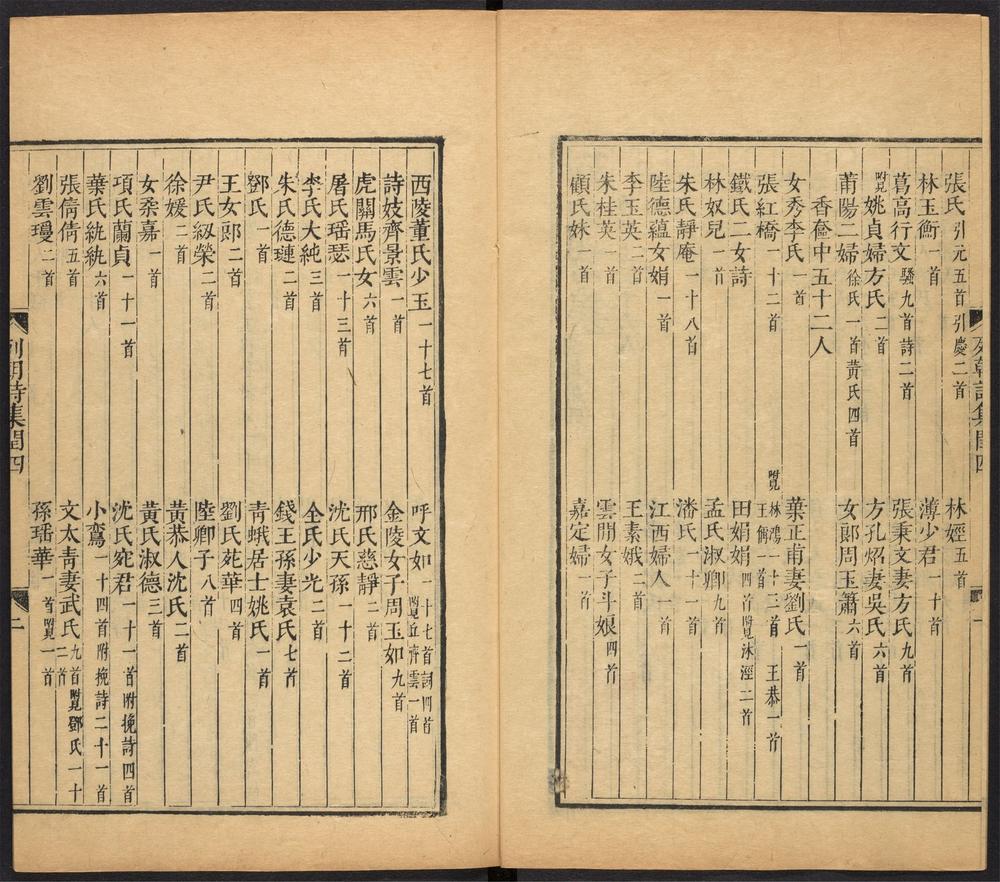 張氏引元五首引慶二首　林娙五首
林玉衡一首　薄少君一十首
葛高行文騷九首詩二首　張秉文妻方氏九首
附見姚貞婦方氏二首　方孔炤妻吳氏六首
莆陽二婦徐氏一首黃氏四首　女郎周玉簫六首
香奩中五十二人
女秀李氏一首　葉正甫妻劉氏一首
張紅橋一十二首　附見林鴻一十三首王偁一首王恭一首
鐵氏二女詩　田娟娟四首附見沐溼二首
林奴兒一首　孟氏淑卿九首
朱氏靜庵一十八首　潘氏一十一首
陸德蘊女娟一首　江西婦人一首
李玉英二首　王素娥二首
朱桂英一首　雲間女子斗娘四首
顧氏妹一首　嘉定婦一首
列朝詩集閏四　一
西陵董氏少玉一十七首　呼文如一十七首詞四首附見丘齊雲一首
詩妓齊景雲一首　金陵女子周玉如九首
虎關馬氏女六首　邢氏慈靜二首
屠氏瑶瑟一十三首　沈氏天孫一十二首
李氏大純三首　全氏少光二首
朱氏德璉二首　錢王孫妻袁氏七首
鄧氏一首　青蛾居士姚氏一首
王女郎二首　劉氏苑華四首
尹氏紉榮二首　陸卿子八首
徐媛二首　黃恭人沈氏二首
女柔嘉一首　黃氏淑德三首
項氏蘭貞一十一首　沈氏宛君一十一首附挽詩四首
葉氏紈紈六首　小鸞一十四首附挽詩二十一首
張倩倩五首　文太青妻武氏九首附見鄧氏一十二首
劉雲瓊二首　孫瑶華一首附見一首
列朝詩集閏四　二